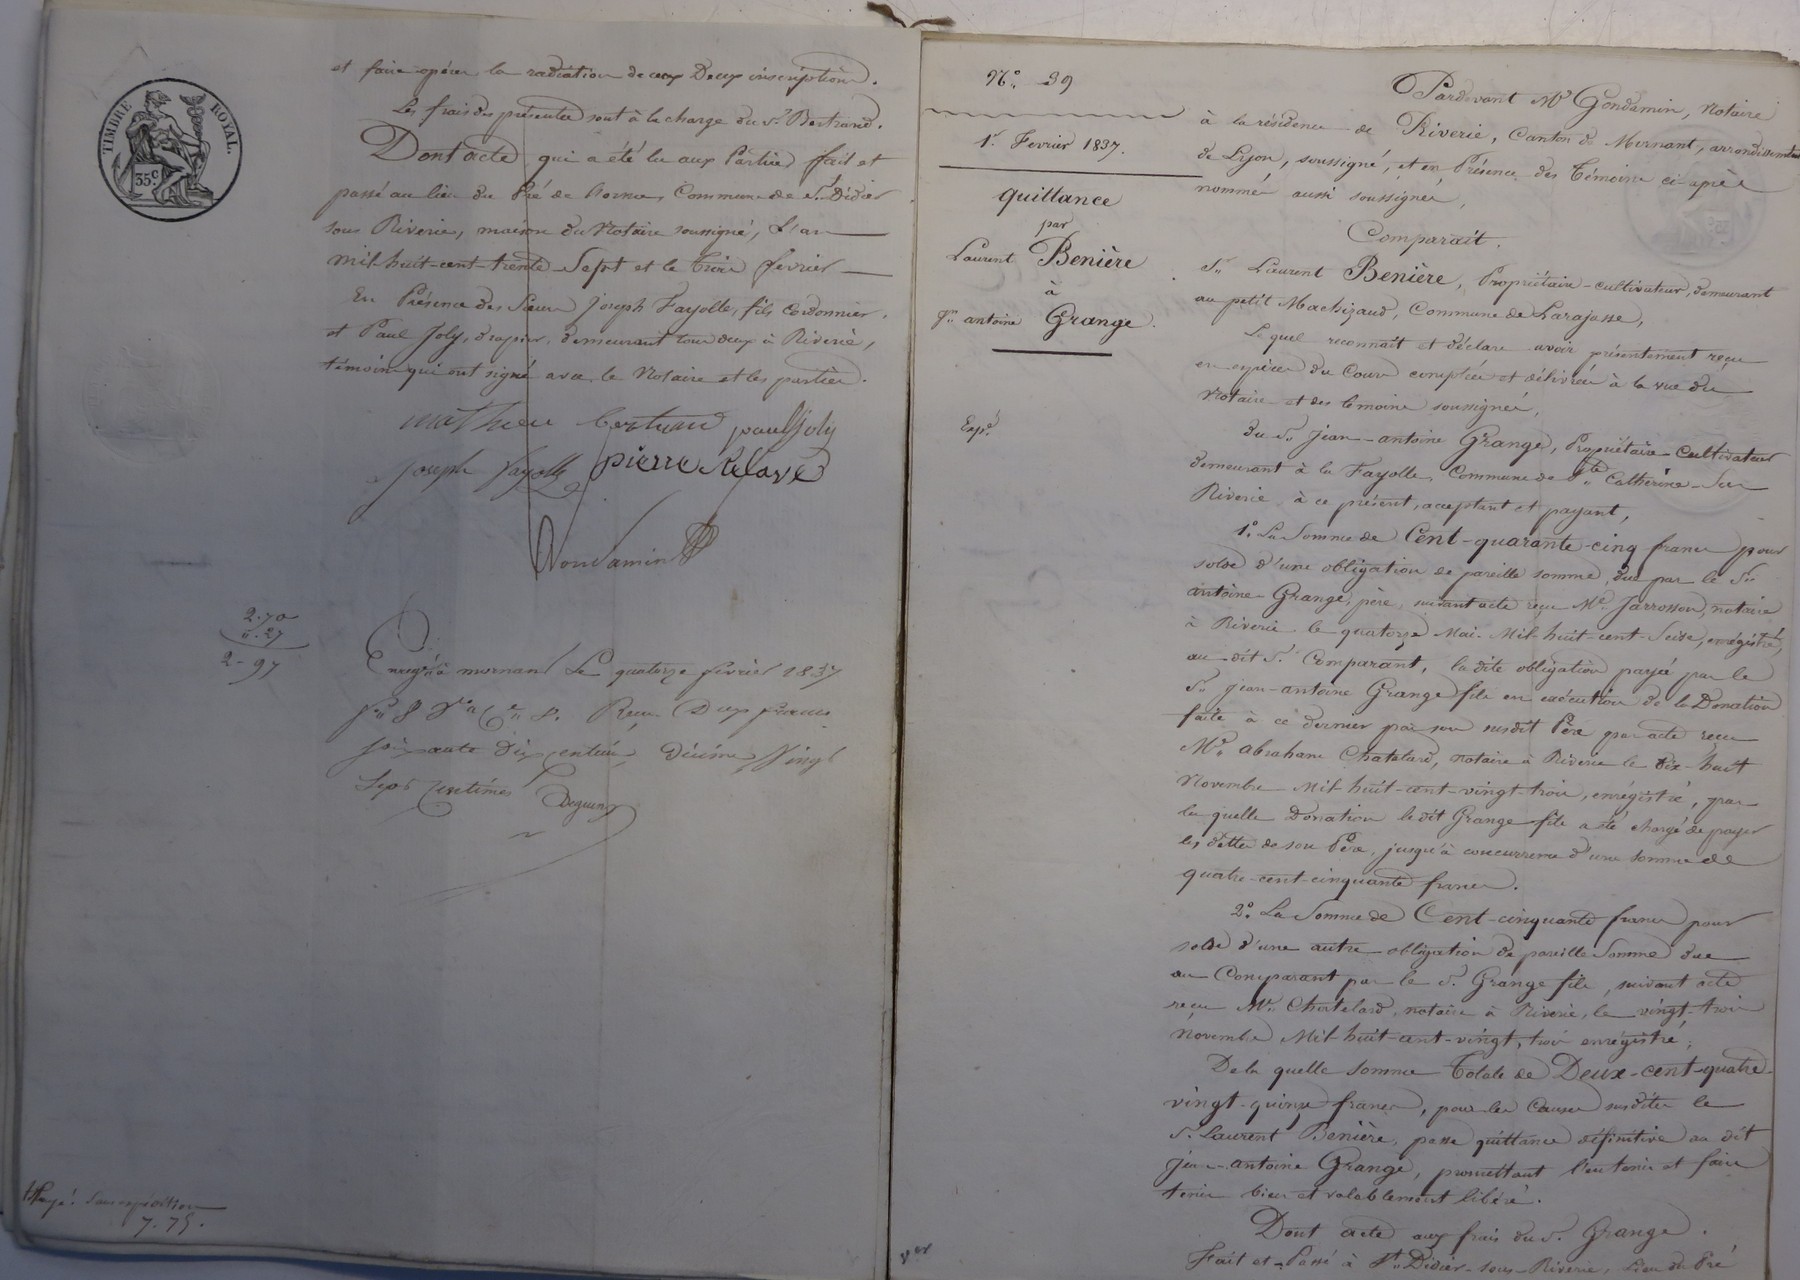 TIMBRE ROYAL.
35c.
et faire opérer la radiation de ces deux inscriptions.
Les frais des présentes sont à la charge du Sr. Bertrand.
Dont acte, qui a été lu aux Parties, fait et
passé au lieu du Pré de Commune de St. Didier
sous Riverie, maison du Notaire soussigné, L'an
mil-huit-cent-trente-Sept et le trois fevrier
En Présence des Sieurs Joseph Fayolle, fils Cordonnier,
et Paul Joly, drapier, demeurant tous deux à Riverie,
témoins qui ont signé avec le Notaire et les parties.
mathieu bertrand paul Joly
joseph fayolle pierre
Gondamin
2.70
".27
2-97
Enregé à mornant Le quatorze fevrier 1837
Reçu Deux francs
soixante dix centimes, Décime Vingt
Sept centimes
Payé: Sans expédition
7.75.
N°. 39
1r. Fevrier 1837.
quittance
par
Laurent Benière
à
Jn. antoine Grange.
Expé.
Pardevant Me Gondamin, Notaire
à la résidence de Riverie, Canton de Mornant, arrondissement
de Lyon, soussigné, et en Présence des Témoins ci-après
nommés aussi soussignés,
Comparait.
Sr. Laurent Benière, Propriétaire-cultivateur, demeurant
au petit Machizaud, Commune de Larajasse,
Lequel reconnait et déclare avoir présentement reçu
en espèces du Cours comptées et délivrées à la vue du
Notaire et des témoins soussignés,
du Sr. Jean-antoine Grange, Propriétaire-Cultivateur
demeurant à la Fayolle, Commune de Ste. Catherine-Sur
Riverie à ce présent, acceptant et payant,
1°. La Somme de Cent-quarante-cinq francs pour
solde d'une obligation de pareille somme, due par le Sr.
antoine Grange, père, suivant acte reçu Me. Jarrosson, notaire
à Riverie le quatorze Mai Mil-huit-cent-Seize, enrégistré,
au dit Sr. Comparant, la dite obligation payée par le
Sr. jean-antoine Grange fils en exécution de la Donation
faite à ce dernier par son susdit Père par acte reçu
Me. abraham Chatelard, notaire à Riverie le dix-huit
Novembre Mil-huit-cent-vingt-trois, enrégistré, par
la quelle Donation le dit Grange fils a été chargé de payer
les dettes de son Père, jusqu'à concurrence d'une somme de
quatre-cent-cinquante francs.
2°. La Somme de Cent-cinquante francs pour
solde d'une autre obligation de pareille Somme due
au Comparant par le Sr. Grange fils, suivant acte
reçu Me. Chatelard, notaire à Riverie, le vingt-trois
novembre Mil-huit-cent-vingt-trois enrégistré;
De la quelle somme Totale de Deux-cent-quatre-
vingt-quinze francs, pour les Causes susdites le
Sr. Laurent Benière, passe quittance définitive au dit
jean-antoine Grange, promettant l'en tenir et faire
tenir bien et valablement libéré.
Dont acte aux frais du Sr. Grange.
Fait et Passé à St. Didier-sous-Riverie, Lieu du Pré